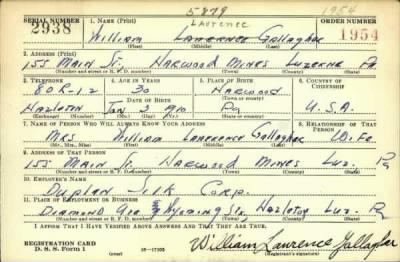 5879 1954
SERIAL NUMBER 1. NAME (Print) LAWRENCE ORDER NUMBER
2938 William Lawrence Gallagher 1954
(First) (Middle) (Last)
2. ADDRESS (Print)
155 Main St. Harwood Mines Luzerne Pa
(Number and street or R. F. D. number) (Town) (County) (State)
3. TELEPHONE 4. AGE IN YEARS 5. PLACE OF BIRTH 6. COUNTRY OF CITIZENSHIP
808-R-12 30 Harwood
DATE OF BIRTH (Town or county)
Hazleton Jan 3 1910 Pa U.S.A.
(Exchange) (Mo.) (Day) (Yr.) (State or country)
7. NAME OF PERSON WHO WILL ALWAYS KNOW YOUR ADDRESS 8. RELATIONSHIP OF THAT PERSON
Mrs William Lawrence Gallagher Wife
(Mr., Mrs., Miss) (First) (Middle) (Last)
9. ADDRESS OF THAT PERSON
155 Main St. Harwood Mines Luz. Pa
(Number and street or R. F. D. number) (Town) (County) (State)
10. EMPLOYER'S NAME
Duplan Silk Corp.
11. PLACE OF EMPLOYMENT OR BUSINESS
Diamond Ave & Wyoming St. Hazleton Luz. Pa
(Number and street or R. F. D. number) (Town) (County) (State)
I AFFIRM THAT I HAVE VERIFIED ABOVE ANSWERS AND THAT THEY ARE TRUE.
REGISTRATION CARD
D. S. S. Form 1 (over) 16-17105 William Lawrence Gallagher
(Registrant's signature)